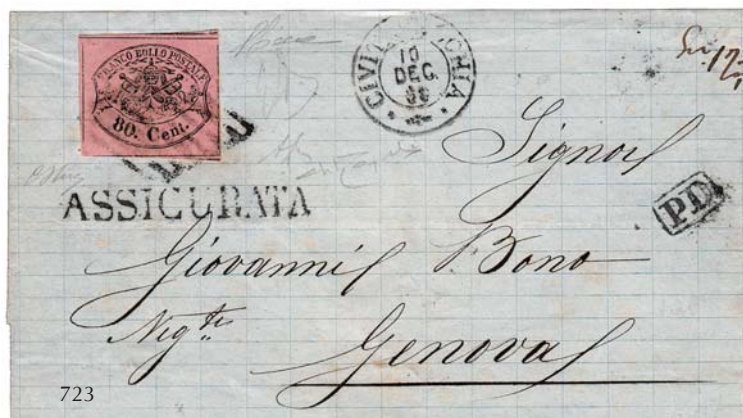 FRANCO BOLLO POSTALE
80. Cent.
10
DEC.
ASSICURATA
P.D.
Signor
Giovanni Bono
Neg.te
Genova
723